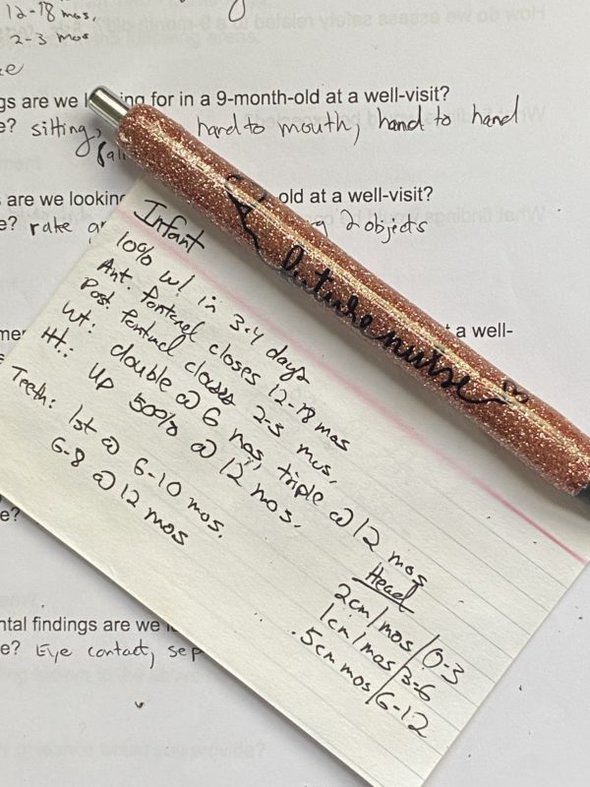 12-18 mos.
2-3 mos
gs are we ing for in a 9-month-old at a well-visit?
e? sitting, hand to mouth, hand to hand
are we looking old at a well-visit?
e? rake 2 objects
a well-
future nurse
Infant
10% w/ in 3-4 days
Ant. fontanel closes 12-18 mos
Post. fontanel closes 2-3 mos.
Wt: double @ 6 mos, triple @ 12 mos
Ht.: up 50% @ 12 mos.
Teeth: 1st @ 6-10 mos.
6-8 @ 12 mos
Head
2cm/mos/0-3
1cm/mos/3-6
.5cm mos/6-12
e?
ntal findings are we
e? Eye contact, sep